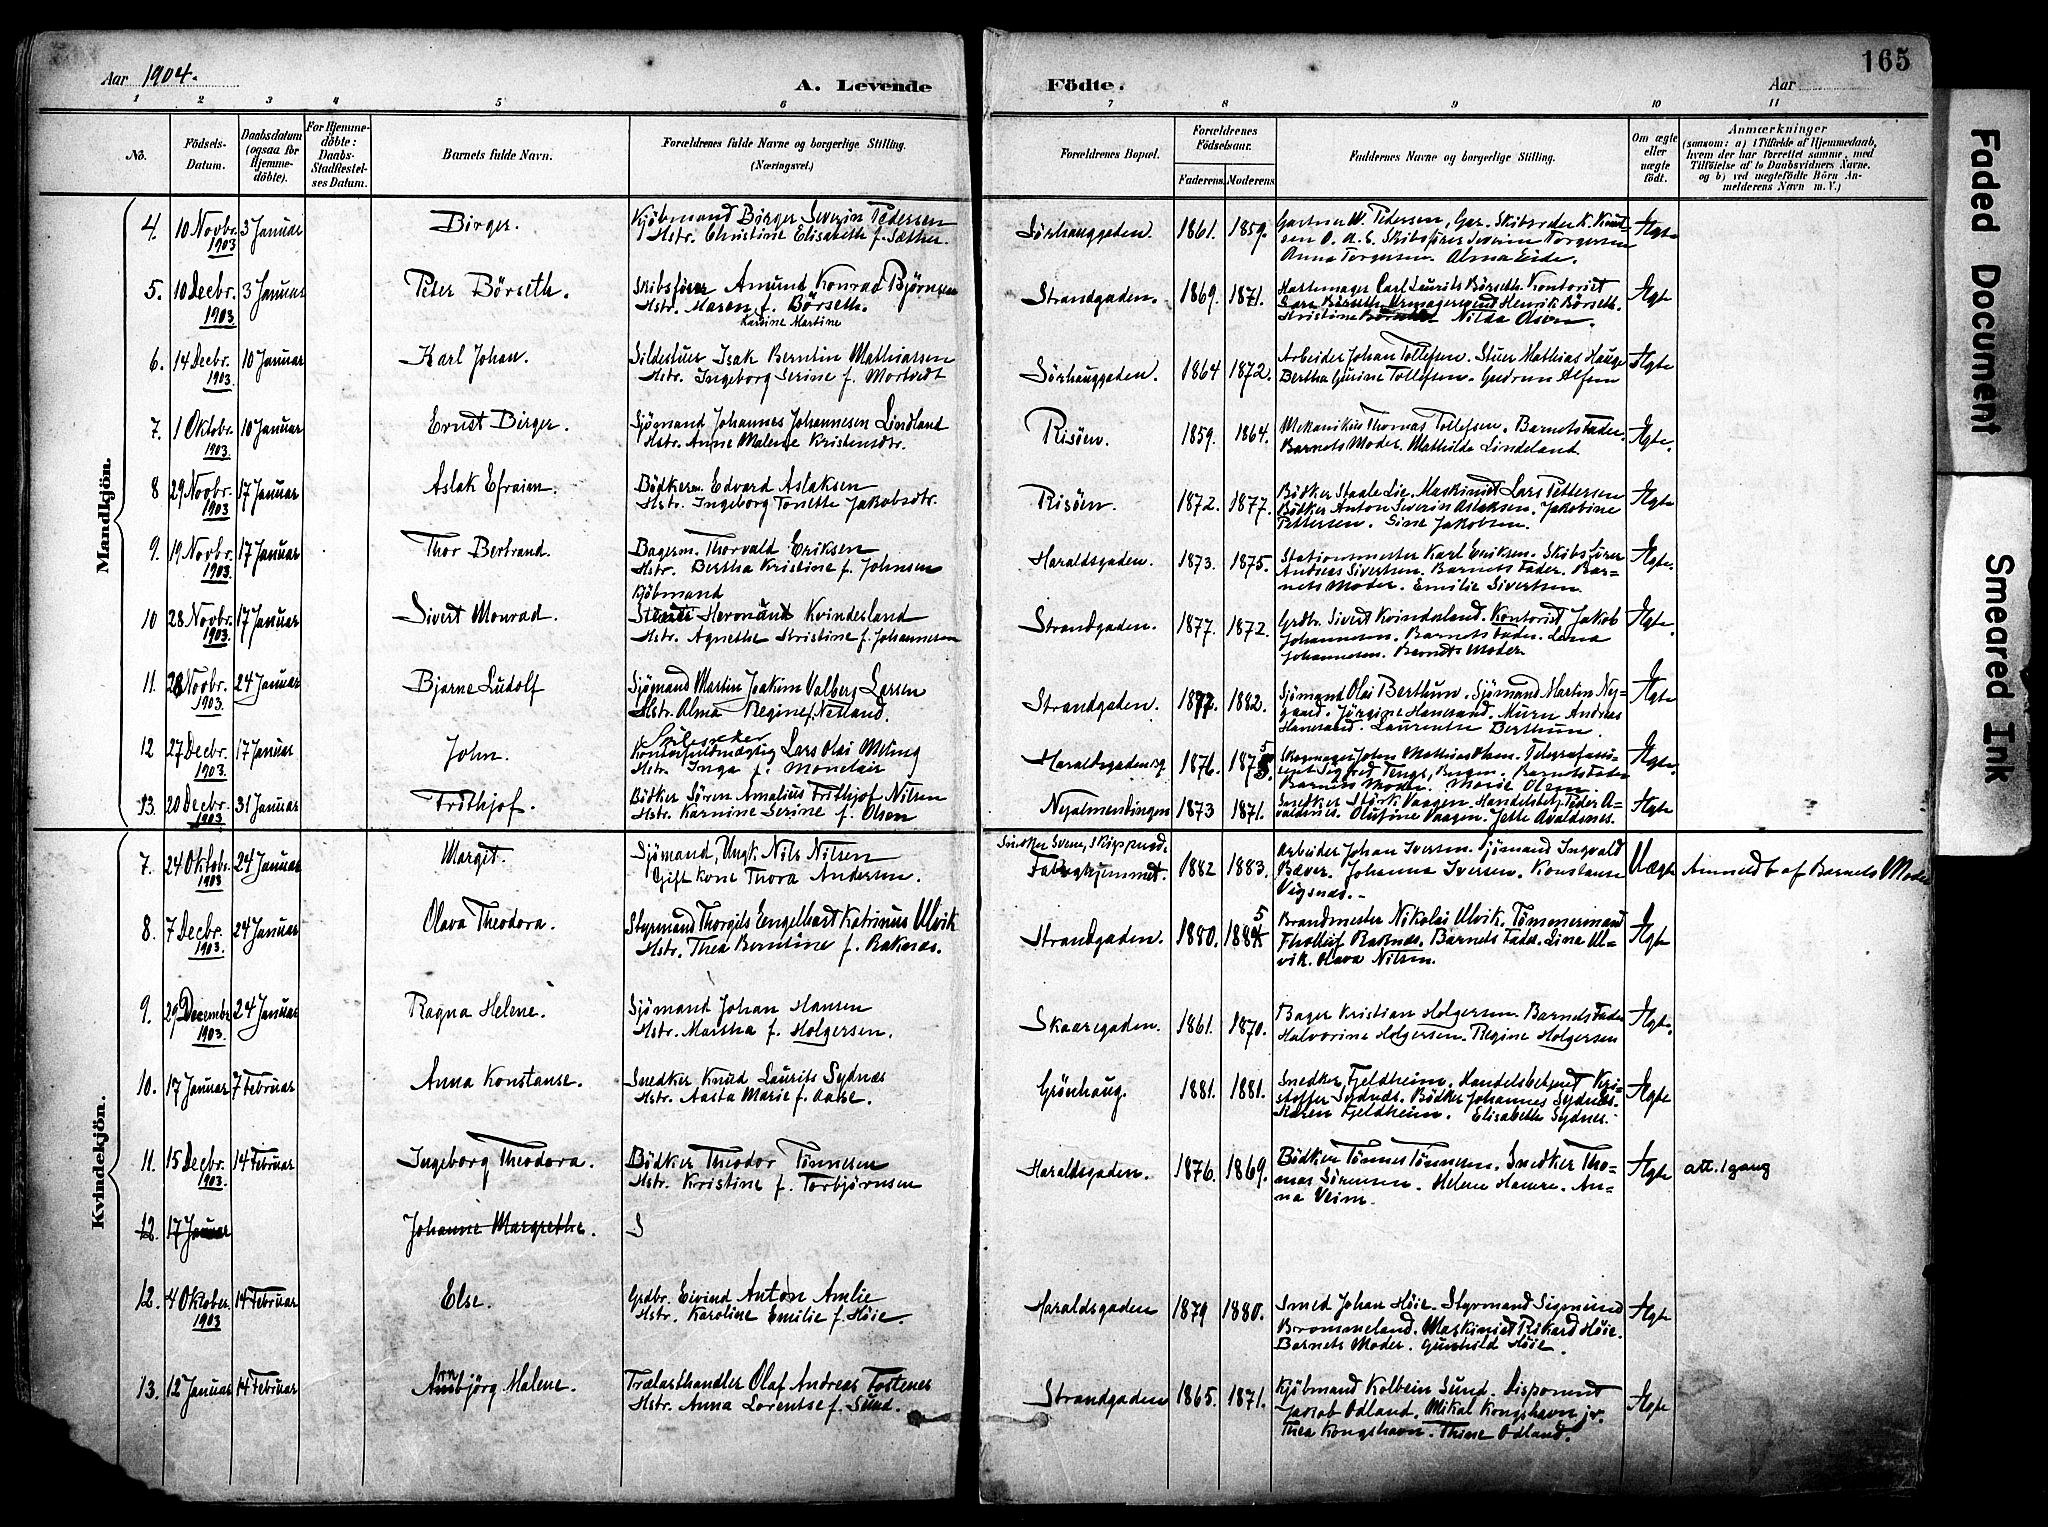 Aar 1904. A. Levende Födte. Aar 165
1 2 3 4 5 6 7 8 9 10 11
No. Födsels-Datum. Daabsdatum (ogsaa for Hjemme-döbte). For Hjemme-döbte: Daabs-Stadfæstel-ses Datum. Barnets fulde Navn. Forældrenes fulde Navne og borgerlige Stilling. (Næringsvei.) Forældrenes Bopæl. Forældrenes Födselsaar. Faderens. Moderens. Faddernes Navne og borgerlige Stilling. Om ægte eller uægte födt. Anmærkninger (saasom: a) i Tilfælde af Hjemmedaab, hvem der har forrettet samme, med Tilföielse af to Daabsvidners Navne. og b) ved uægtefödte Börn An-melderens Navn m. V.)
Mandkjön.
4. 10 Novbr. 1903 3 Januar Birger. Kjöbmand Börger Severin Pedersen
Hstr. Christine Elisabeth f. Sæther. Sörhauggaden. 1861. 1859. Gartner W. Pedersen, Skibsreder K. Knut-
sen O. A. S. Skibsförer Severin Torgersen
Anna Torgersen. Alma Eide. Ægte
5. 10 Decbr. 1903. 3 Januar Peter Börseth. Skibsförer Amund Konrad Björnsen
Hstr. Maren f. Börseth.
Karine Martine Strandgaden. 1869. 1871. Carl Laurits Börseth. Kontorist
Henrik Börseth.
Nilda Olsen. Ægte
6. 14 Decbr. 1903. 10 Januar Karl Johan. Sildestuer Isak Berntin Mathiassen
Hstr. Ingeborg Serine f. Mortvedt Sörhauggaden. 1864 1872. Arbeider Johan Tollefsen. Stuer Mathias Hauge
Bertha Gurine Tollefsen. Gudrun Ægte
7. 1 Oktobr. 1903. 10 Januar Ernst Birger. Sjömand Johannes Johannesen Lindland
Hstr. Anne Malene Kristensdtr. Risöen. 1859. 1864. Mekanikus Thomas Tollefsen. Barnets Fader.
Barnets Moder. Mathilde Lindeland Ægte.
8 29 Novbr. 1903 17 Januar Aslak Efraim. Bödkerm. Edvard Aslaksen
Hstr. Ingeborg Tonette Jakobsdtr. Risöen. 1872. 1877. Bödker Staale Lie. Maskinist Lars Pettersen
Bödker Anton Severin Aslaksen. Jakobine
Pettersen. Sine Jakobsen. Ægte
9. 19 Novbr. 1903. 17 Januar Thor Bertrand. Bagerm. Thorvald Eriksen
Hstr. Bertha Kristine f. Johnsen Haraldsgaden. 1873. 1875. Stationsmester Karl Eriksen. Skibsförer
Andreas Sivertsen. Barnets Fader. Bar=
nets Moder. Emilie Sivertsen. Ægte.
10 28 Novbr. 1903. 17 Januar Sivert Monrad. Kjöbmand
Kvindesland
Hstr. Agnethe Kristine f. Johannesen Strandgaden. 1877. 1872. Grdbr. Sivert Kvindesland. Kontorist Jakob
Johannesen. Barnets Fader. Lena
Johannesen. Barnets Moder Ægte.
11. 28 Novbr. 1903. 24 Januar Bjarne Ludolf Sjömand Martin Joakim Valberg Larsen
Hstr. Alma Regine f. Nesland. Strandgaden. 1877. 1882. Sjömand Olai Berthun. Sjömand Martin Ny-
gaard. Jörgine Hanesand. Murm Andreas
Hanesand. Laurentse Berthun. Ægte
12 27 Decbr. 1903. 17 Januar John. Lars Olai Meling
Hstr. Inga f. Monclair Haraldsgaden 1876. 1875. Skomager John Mathias Olsen.
Barnets Fader
Barnets Moder. Marie Olsen Ægte.
13. 20 Decbr. 1903 31 Januar Frithjof. Bödker Sören Amalius Frithjof Nilsen
Hstr. Karnine Serine f. Olsen 1873 1871. Snedker Störk Vaagen. Handelsbetj. Peder A-
valdsnes. Olufine Vaagen. Jette Avaldsnes. Ægte
Kvindekjön.
7. 24 Oktobr. 1903 24 Januar Margit. Sjömand, Ungk. Nils Nilsen
Gift Kone Thora Andersen. 1882 1883. Arbeider Johan Iversen. Sjömand Ingvald
Bæver. Johanna Iversen. Konstanse
Vigsnæs. Uægte Anmeldt af Barnets Moder
8. 7 Decbr. 1903. 24 Januar Olava Theodora. Styrmand Thorgils Engelhart Katrinus Ulvik
Hstr. Thea Berntine f. Baknæs. Strandgaden. 1880. 1885 Brandmester Nikolai Ulvik, Tömmermand
Thollif Baknæs. Barnets Fader. Lina Ul-
vik. Olava Nilsen. Ægte
9. 29 Decembr 1903. 24 Januar Ragna Helene. Sjömand Johan Hansen
Hstr. Martha f. Holgersen. Skaaregaden. 1861. 1870. Bager Kristian Holgersen. Barnets Fader
Halvorine Holgersen. Regine Holgersen Ægte.
10. 17 Januar 7 Februar Anna Konstanse. Snedker Knud Laurits Sydnæs
Hstr. Aasta Marie f. Aase. Grönhaug. 1881. 1881. Snedker Fjeldheim. Handelsbetjent Kri-
stoffer Sydnæs. Bödker Johannes Sydnæs.
Karen Fjeldheim. Elisabeth Sydnes. Ægte
11. 15 Decbr. 1903. 14 Februar Ingeborg Theodora. Bödker Theodor Tönnesen
Hstr. Kristine f. Torbjörnsen Haraldsgaden. 1876. 1869. Bödker Tönnes Tönnesen. Snedker Tho-
mas Sörensen. Helene Hamre. An-
na Veim. Ægte att. 1 gang
12. 17 Januar Johanne Margrethe. S
12. 4 Oktober. 1903 14 Februar Else. Grdbr. Eivind Anton Amlie
Hstr. Karoline Emilie f. Höie. Haraldsgaden 1879 1880. Smed Johan Höie. Styrmand Sigmund
Brommeland. Maskinist Rikard Höie.
Barnets Moder. Gunhild Höie. Ægte
13. 12 Januar 14 Februar Annbjörg Malene. Trælasthandler Olaf Andreas Tostenes
Hstr. Anna Lorentse f. Sund. Strandgaden 1865. 1871. Kjöbmand Kolbein Sund. Disponent
Jakob Odland. Mikal Kongshavn jr.
Thea Kongshavn. Thine Odland. Ægte
Faded Document
Smeared Ink